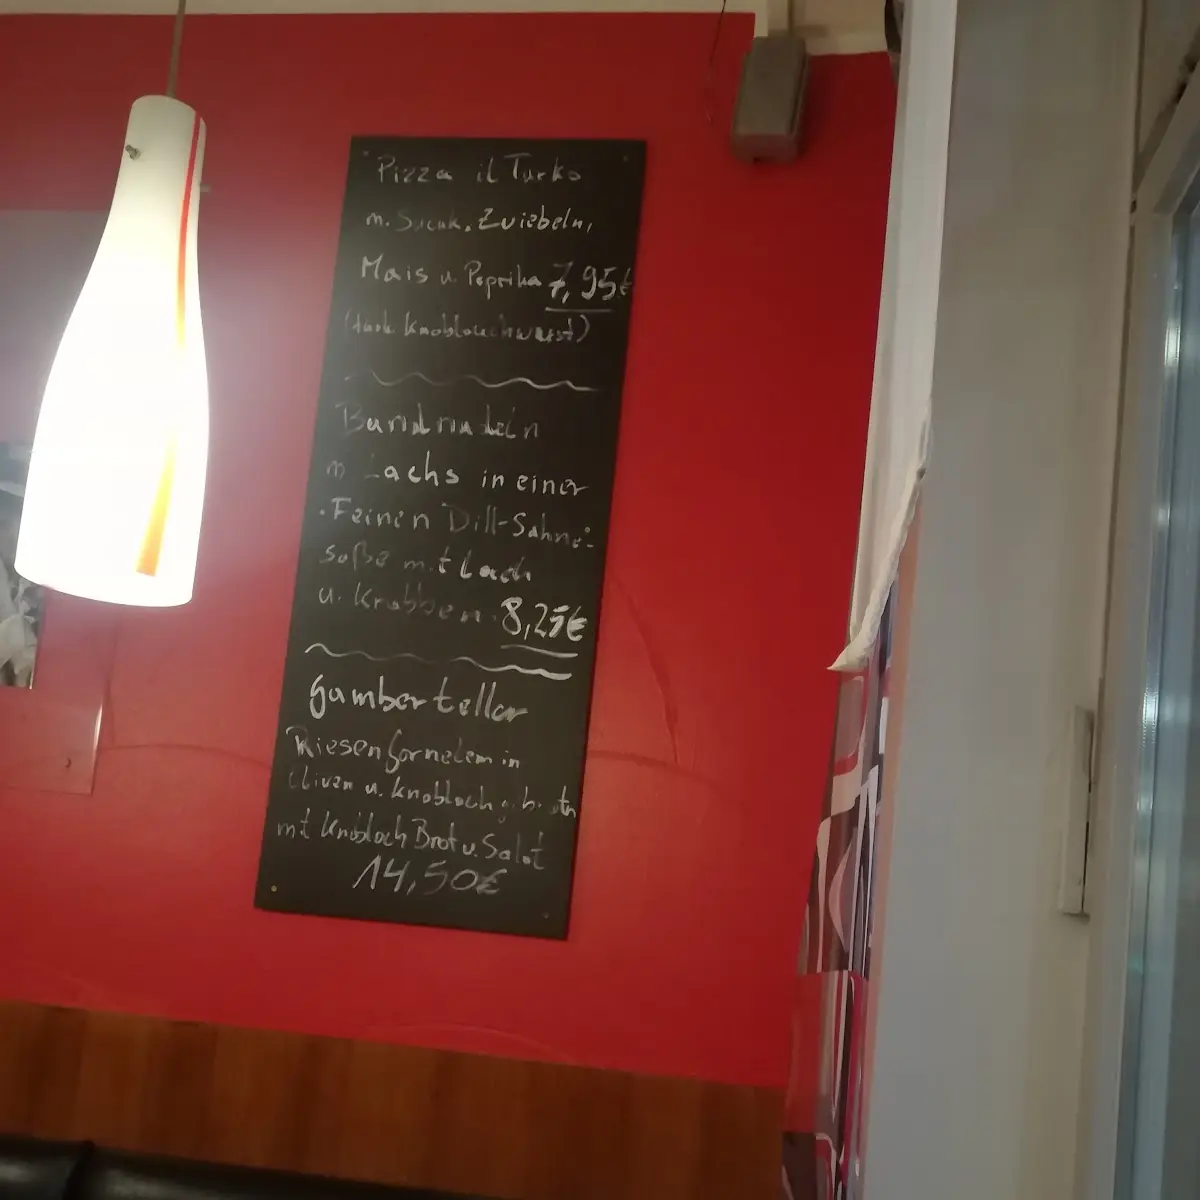 Pizza il Turko
m. Sucuk, Zwiebeln,
Mais u. Paprika 7,95€
(türk. Knoblauchwurst)
Bandnudeln
m Lachs in einer
Feinen Dill-Sahne-
soße mit Lach
u. Krabben 8,25€
Gamberteller
Riesengarnelem in
Oliven u. Knobloch
mit Knobloch Brot u. Salat
14,50€